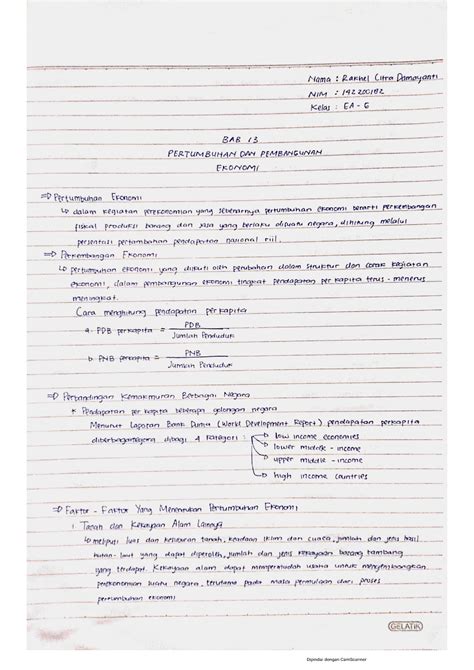 Nama : Rakhel Citra Damayanti
NIM : 192200182
Kelas : EA - G
BAB 13
PERTUMBUHAN DAN PEMBANGUNAN
EKONOMI
⇒ Pertumbuhan Ekonomi
↳ dalam kegiatan perekonomian yang sebenarnya pertumbuhan ekonomi berarti perkembangan
fiskal produksi barang dan jasa yang berlaku disuatu negara, dihitung melalui
persentasi pertambahan pendapatan nasional riil.
⇒ Perkembangan Ekonomi
↳ pertumbuhan ekonomi yang diikuti oleh perubahan dalam struktur dan corak kegiatan
ekonomi, dalam pembangunan ekonomi tingkat pendapatan per kapita terus - menerus
meningkat.
Cara menghitung pendapatan perkapita
a. PDB perkapita = PDB
Jumlah Penduduk
b. PNB perkapita = PNB
Jumlah Penduduk
⇒ Perbandingan Kemakmuran Berbagai Negara
* Pendapatan per kapita beberapa golongan negara
Menurut Laporan Bank Dunia (World Development Report) pendapatan perkapita
diberbagai negara dibagi 4 kategori
→ low income economies
→ lower middle - income
→ upper middle - income
→ high income countries
⇒ Faktor - Faktor Yang Menentukan Pertumbuhan Ekonomi
1. Tanah dan Kekayaan Alam Lainnya
↳ meliputi luas dan kesuburan tanah, keadaan iklim dan cuaca, jumlah dan jenis hasil
hutan - laut yang dapat diperoleh, jumlah dan jenis kekayaan barang tambang
yang terdapat. Kekayaan alam dapat mempermudah usaha untuk mengembangkan
perekonomian suatu negara, terutama pada masa permulaan dari proses
pertumbuhan ekonomi
GELATIK
Dipindai dengan CamScanner